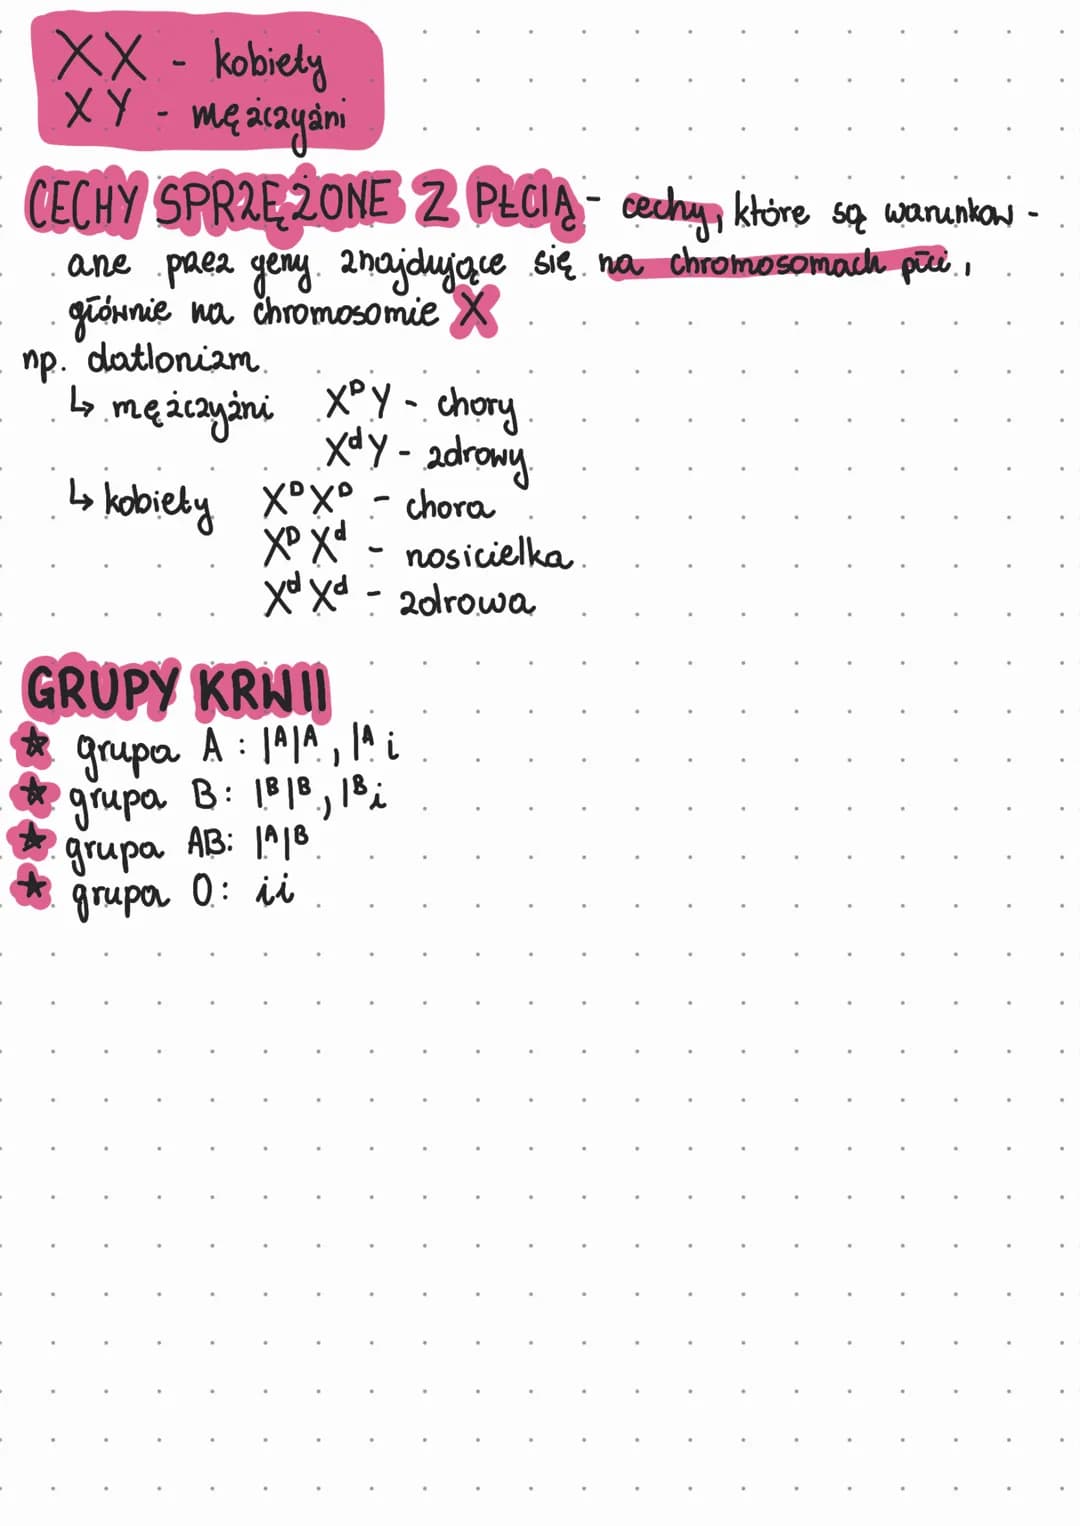 XX - kobiety
XY - mężczyźni
CECHY SPRZĘŻONE Z PŁCIĄ - cechy, które są warunkow-
ane przez geny znajdujące się na chromosomach płci,
głównie na chromosomie X
np. datlonizm
↳ mężczyźni XᴰY - chory
XᵈY - zdrowy
↳ kobiety XᴰXᴰ - chora
XᴰXᵈ - nosicielka
XᵈXᵈ - zdrowa
GRUPY KRWII
★ grupa A: IᴬIᴬ, Iᴬi
★ grupa B: IᴮIᴮ, Iᴮi
★ grupa AB: IᴬIᴮ
★ grupa 0: ii